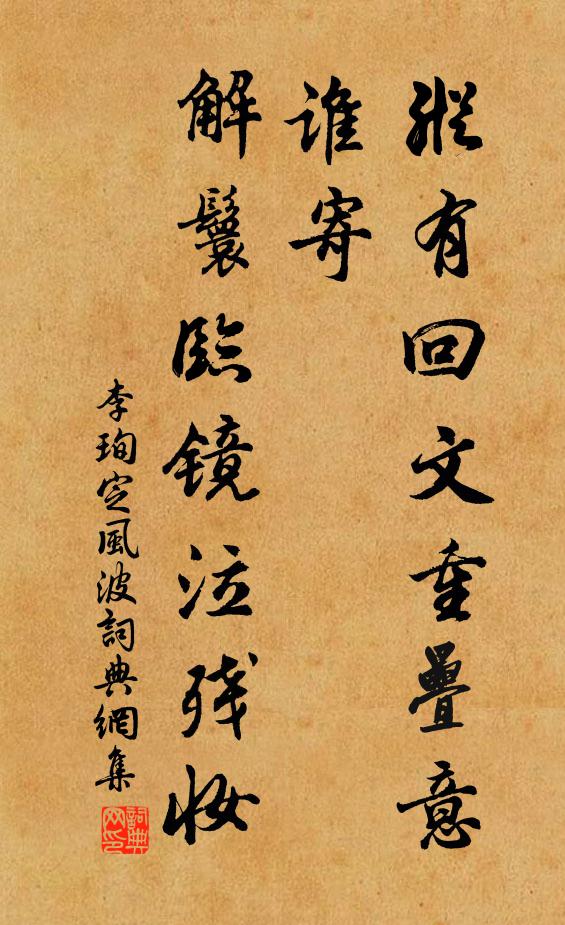 縱有回文重疊意
誰寄
解鬟臨鏡泣残妝
李珣定風波詞典網集
詞典网印